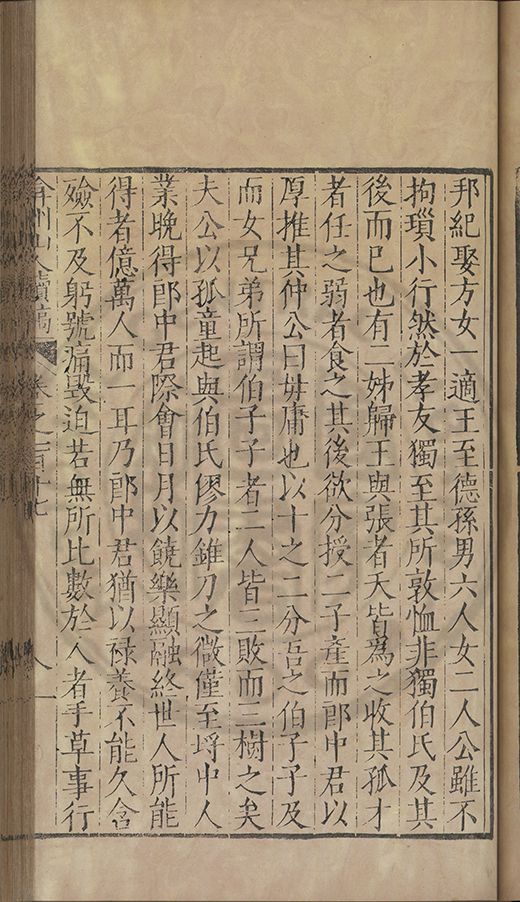 邦紀娶方女一適王至德孫男六人女二人公雖不
拘瑣小行然於孝友獨至其所敦恤非獨伯氏及其
後而已也有二姊歸王與張者夭皆爲之收其孤才
者任之弱者食之其後欲分授二子產而郎中君以
厚推其仲公曰毋庸也以十之二分吾之伯子子及
而女兄弟所謂伯子子者二人皆三敗而三樹之矣
夫公以孤童起與伯氏僇力錐刀之微僅至埒中人
業晚得郎中君際會日月以饒樂顯融終世人所能
得者億萬人而一耳乃郎中君猶以祿養不能久含
殮不及躬號痛毀迫若無所比數於人者手草事行
弇州山人續稿 卷之一百十七 八